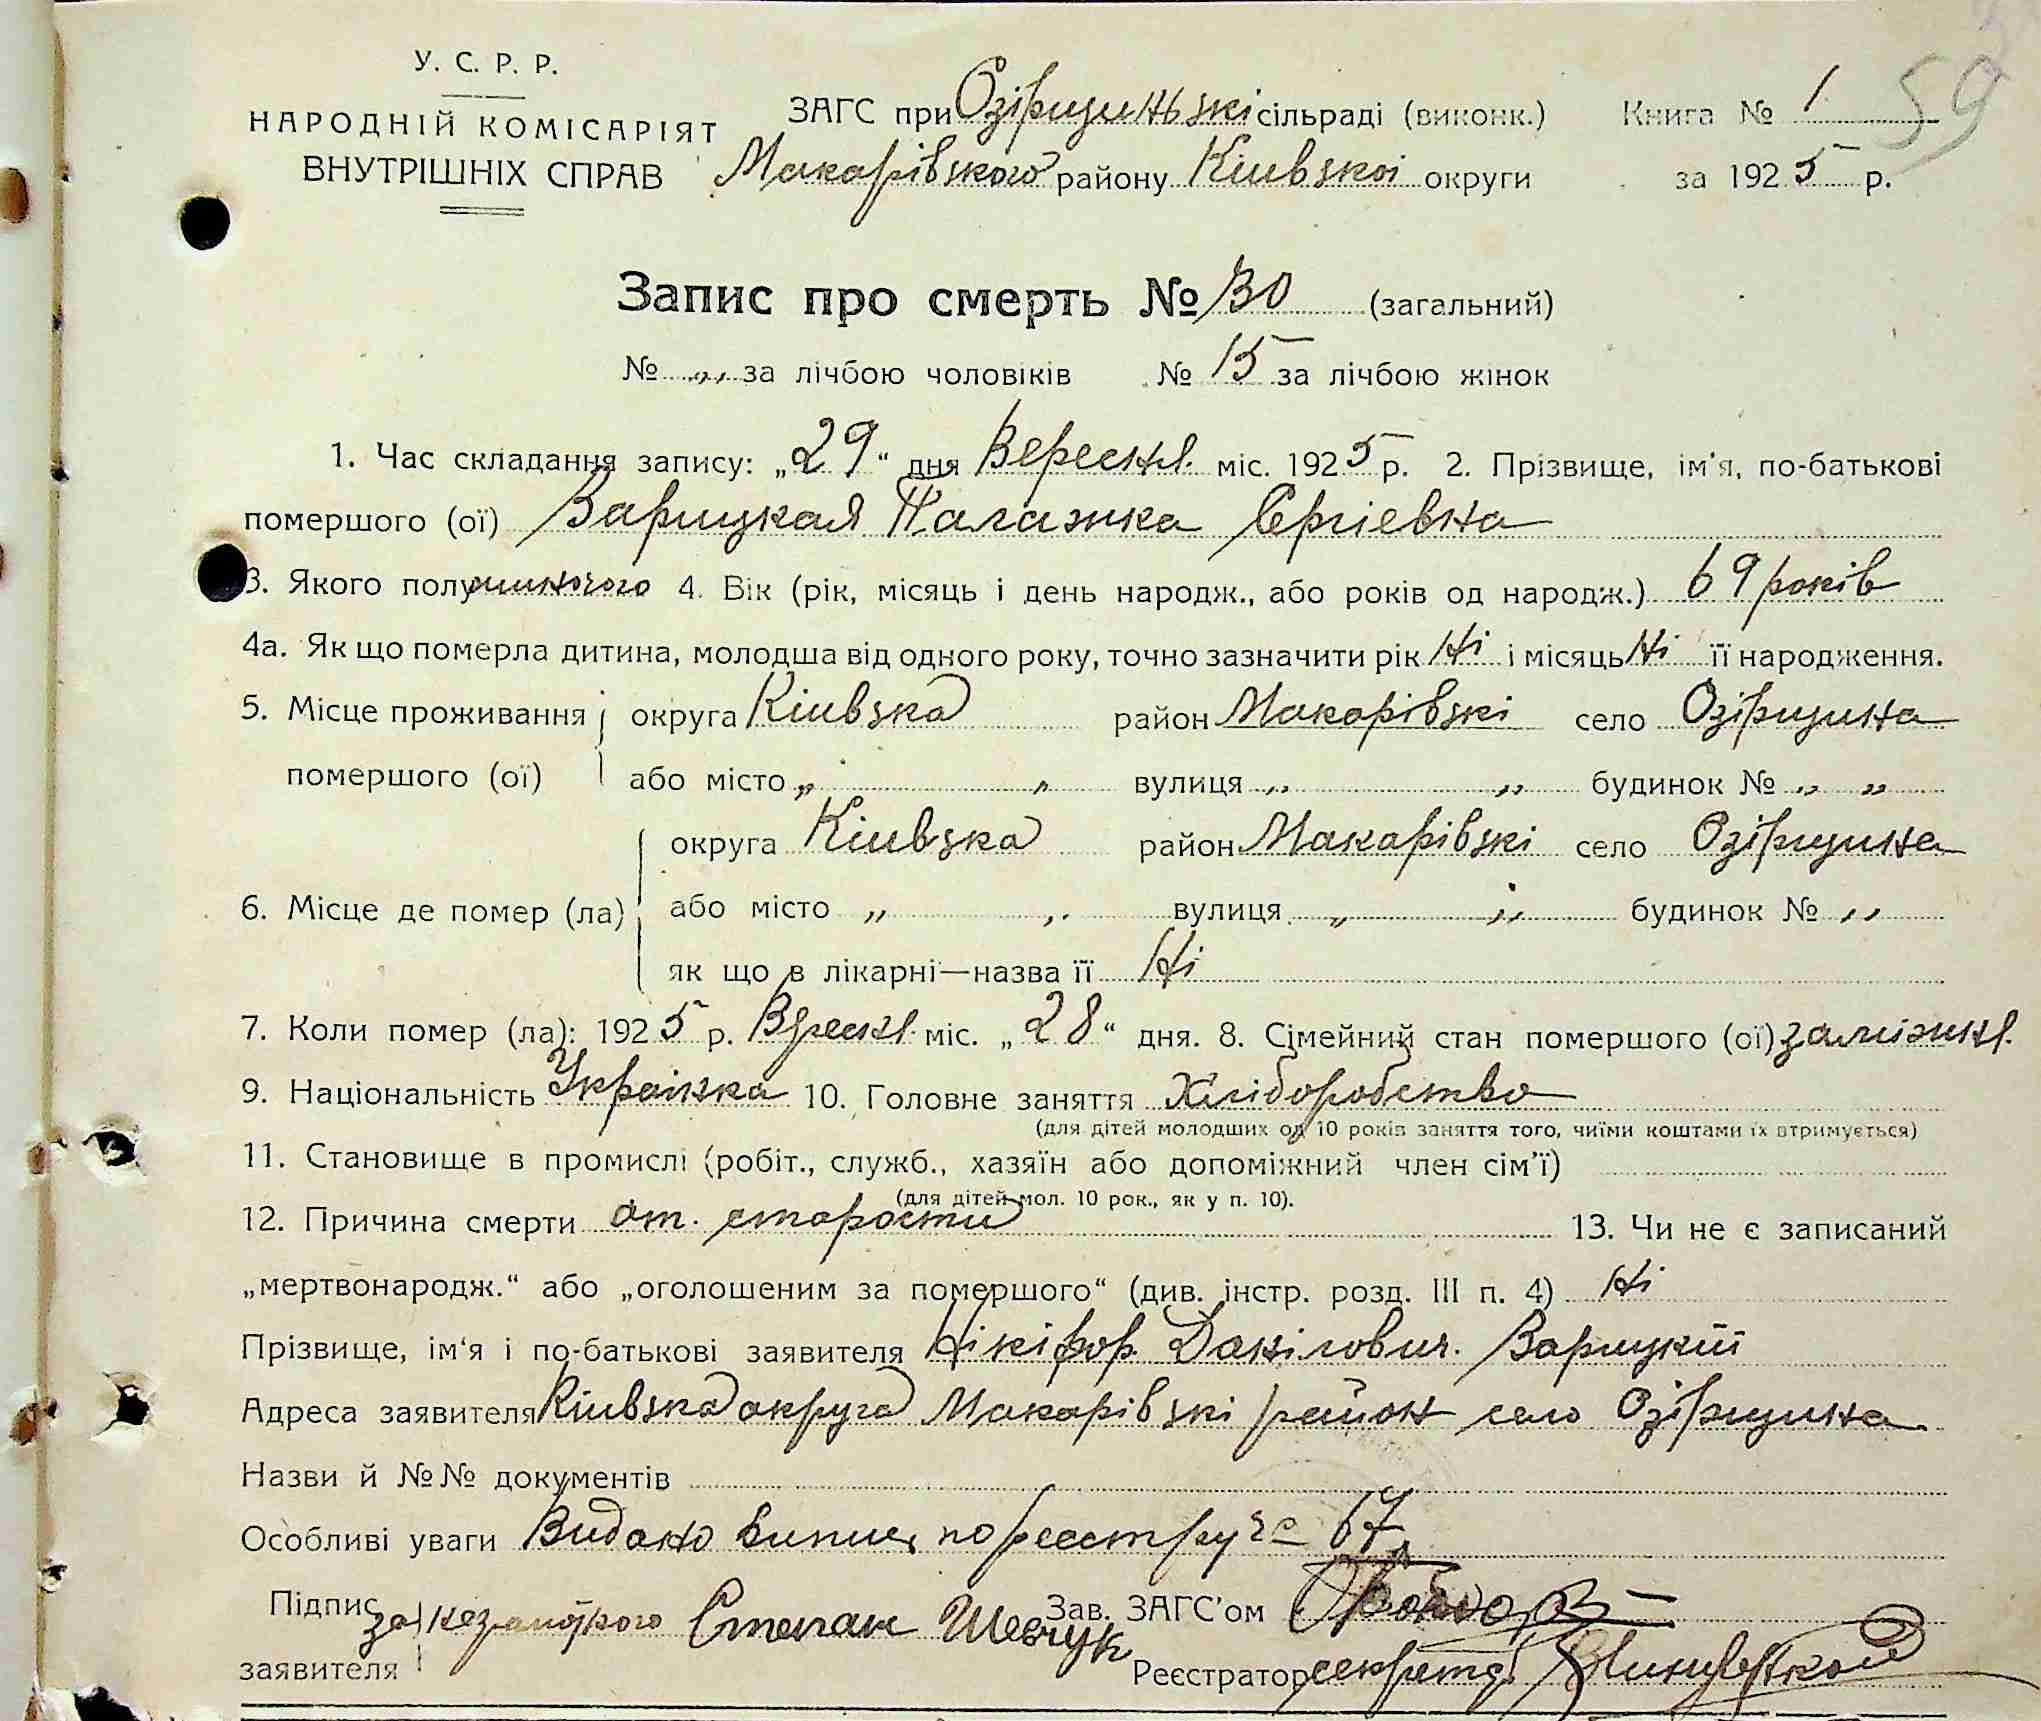 59
У. С. Р. Р.
НАРОДНІЙ КОМІСАРІЯТ
ВНУТРІШНІХ СПРАВ
ЗАГС при Озірщиньскі сільраді (виконк.) Книга № 1
Макарівского району Киівскоі округи за 1925 р.
Запис про смерть № 30 (загальний)
№ „ за лічбою чоловіків № 15 за лічбою жінок
1. Час складання запису: „29“ дня Вересня міс. 1925 р. 2. Прізвище, ім'я, по-батькові
помершого (ої) Варицкая Палажка Сергіевна
3. Якого полу жиночого 4. Вік (рік, місяць і день народж., або років од народж.) 69 років
4а. Як що померла дитина, молодша від одного року, точно зазначити рік Ні і місяць Ні її народження.
5. Місце проживання округа Киівска район Макарівскі село Озірщина
помершого (ої) або місто „ „ вулиця „ „ будинок № „ „
округа Киівска район Макарівскі село Озірщина
6. Місце де помер (ла) або місто „ „ вулиця „ „ будинок № „
як що в лікарні—назва її Ні
7. Коли помер (ла): 1925 р. Вресня міс. „28“ дня. 8. Сімейний стан помершого (ої) заміжня
9. Національність Украінка 10. Головне заняття Хліборобство
(для дітей молодших од 10 років заняття того, чиїми коштами їх втримується)
11. Становище в промислі (робіт., служб., хазяїн або допоміжний член сім'ї)
(для дітей мол. 10 рок., як у п. 10).
12. Причина смерти от. старости 13. Чи не є записаний
„мертвонародж.“ або „оголошеним за помершого“ (див. інстр. розд. III п. 4) Ні
Прізвище, ім'я і по-батькові заявителя Нікіфор Данілович. Варицкій
Адреса заявителя Киівска округа Макарівскі район село Озірщина
Назви й №№ документів
Особливі уваги Видано випис по реестру за 67
Підпис за Степан Шевчук Зав. ЗАГС'ом
заявителя Реєстратор секретар